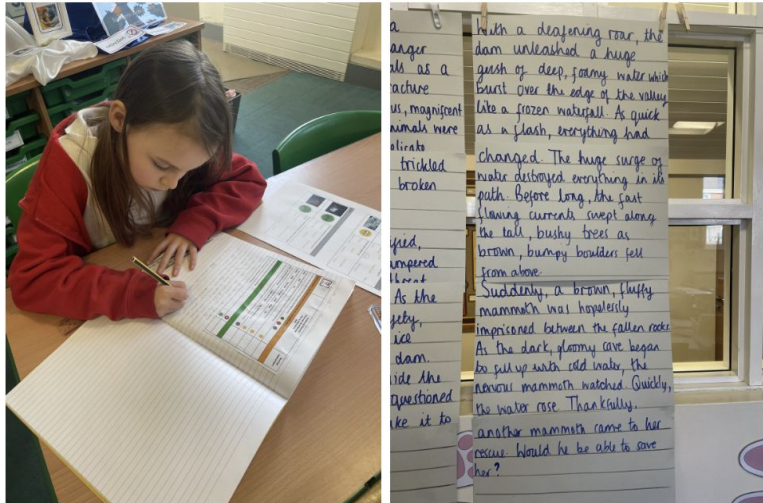 a
anger
als as a
acture
us, magnificent
nimals were
olicate
trickled
broken
mpered
threat
As the
fety,
ice
dam.
ide the
questioned
ke it to
With a deafening roar, the
dam unleashed a huge
gush of deep, foamy water which
burst over the edge of the valley
like a frozen waterfall. As quick
as a flash, everything had
changed. The huge surge of
water destroyed everything in its
path. Before long, the fast
flowing currents swept along
the tall, bushy trees as
brown, bumpy boulders fell
from above.
Suddenly, a brown, fluffy
mammoth was hopelessly
imprisoned between the fallen rocks.
As the dark, gloomy cave began
to fill up with cold water, the
nervous mammoth watched. Quickly,
the water rose. Thankfully,
another mammoth came to her
rescue. Would he be able to save
her?